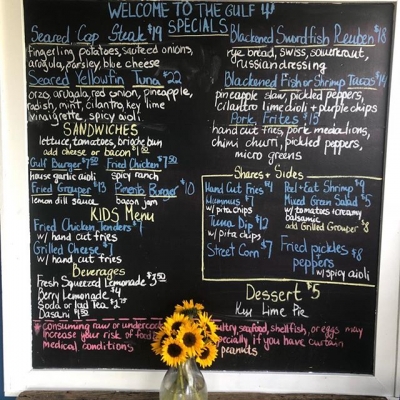 WELCOME TO THE GULF
SPECIALS
Seared Cap Steak $19
fingerling potatoes, sauteed onions,
arugula, parsley, blue cheese
Seared Yellowfin Tuna $22
orzo, arugula, red onion, pineapple,
radish, mint, cilantro, key lime
vinaigrette, spicy aioli
SANDWICHES
lettuce, tomatoes, brioche bun
add cheese or bacon $1.50
Gulf Burger $7.50
house garlic aioli
Fried Chicken $7.50
spicy ranch
Fried Grouper $13
lemon dill sauce
Pimento Burger $10
bacon jam
KIDS Menu
Fried Chicken tenders
w/ hand cut fries
Grilled Cheese
w/ hand cut fries
Beverages
Fresh Squeezed Lemonade $3.50
Berry Lemonade $4
Soda or Iced Tea
Dasani
Blackened Swordfish Reuben $18
rye bread, swiss, sauerkraut,
russian dressing
Blackened Fish or Shrimp Tacos $14
pineapple slaw, pickled peppers,
cilantro lime aioli + purple chips
Pork Frites $15
hand cut fries, pork medallions,
chimi churri, pickled peppers,
micro greens
Shares + Sides
Hand Cut Fries $4
Hummus $7
w/ pita chips
Tuna Dip $12
w/ pita chips
Street Corn $7
Peel + Eat Shrimp $9
Mixed Green Salad $5
w/ tomatoes + creamy
balsamic
add Grilled Grouper $8
Fried pickles $8
+
peppers
w/ spicy aioli
Dessert $5
Key Lime Pie
*consuming raw or undercook ultry, seafood, shellfish, or eggs may
increase your risk of food specially if you have curtain
medical conditions peanuts